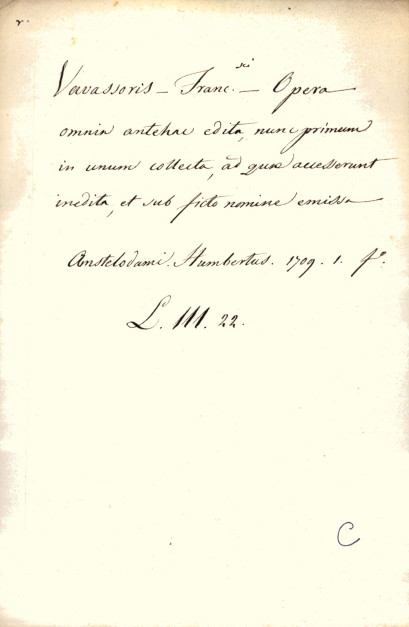 v.
Vavassoris – Franc.sci – Opera
omnia antehac edita, nunc primum
in unum collecta, ad quæ accesserunt
inedita, et sub ficto nomine emissa
Amstelodami. Humbertus. 1709. 1. fº.
L. III. 22.
C